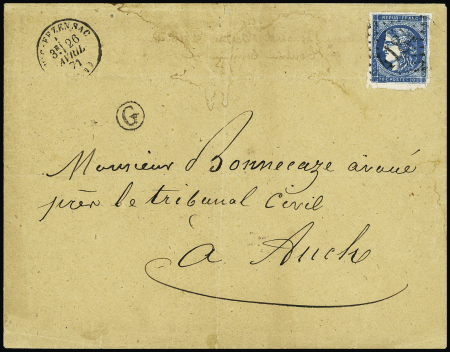 FEZENSAC
26
AVRIL
71
REPUB. FRANC.
G
Monsieur Bonnecaze avoué
près le tribunal Civil
à Auch